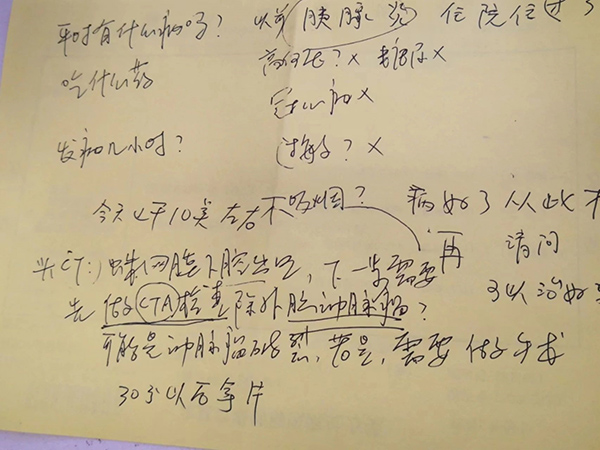 平时有什么病吗？ 以前胰腺炎 住院住过
高血压？× 糖尿×
吃什么药
冠心病×
发病几小时？ 过敏？×
今天上午10点左右 不吸烟？ 病好了从此
头CT：蛛网膜下腔出血，下一步需要 再 请问
去做CTA检查除外脑动脉瘤？ 可以治好
可能是动脉瘤破裂，若是，需要做手术
30分以后拿片